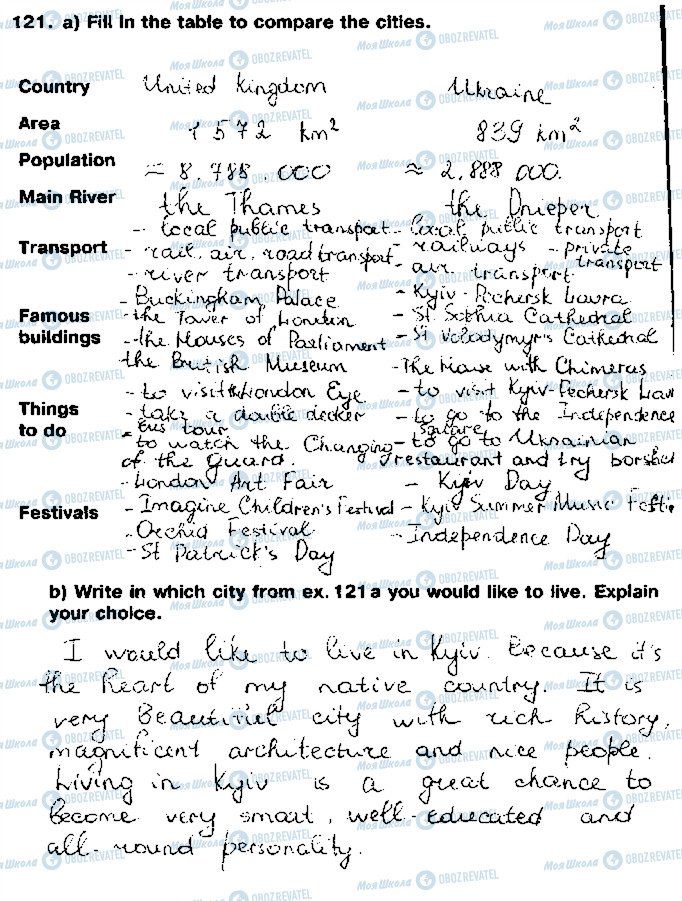 121. a) Fill in the table to compare the cities.
Country United Kingdom Ukraine
Area 1 572 km² 839 km²
Population ≈ 8.788.000 ≈ 2.888 000.
Main River the Thames the Dnieper
Transport - local public transport - local public transport
- rail, air, road transport - railways - private transport
- river transport - air transport
Famous buildings - Buckingham Palace - Kyiv-Pechersk Lavra
- the Tower of London - St Sophia Cathedral
- the Houses of Parliament - St Volodymyr's Cathedral
the British Museum - The House with Chimeras
Things to do - to visit the London Eye - to visit Kyiv-Pechersk Lavr
- take a double decker bus tour - to go to the Independence Square
- to watch the Changing of the Guard. - to go to Ukrainian restaurant and try borshch
Festivals - London Art Fair - Kyiv Day
- Imagine Children's Festival - Kyiv Summer Music Festi
- Orchid Festival - Independence Day
- St Patrick's Day
b) Write in which city from ex. 121 a you would like to live. Explain
your choice.
I would like to live in Kyiv. Because it's
the heart of my native country. It is
very beautiful city with rich history,
magnificent architecture and nice people.
Living in Kyiv is a great chance to
become very smart, well-educated and
all-round personality.
Моя Школа OBOZREVATEL